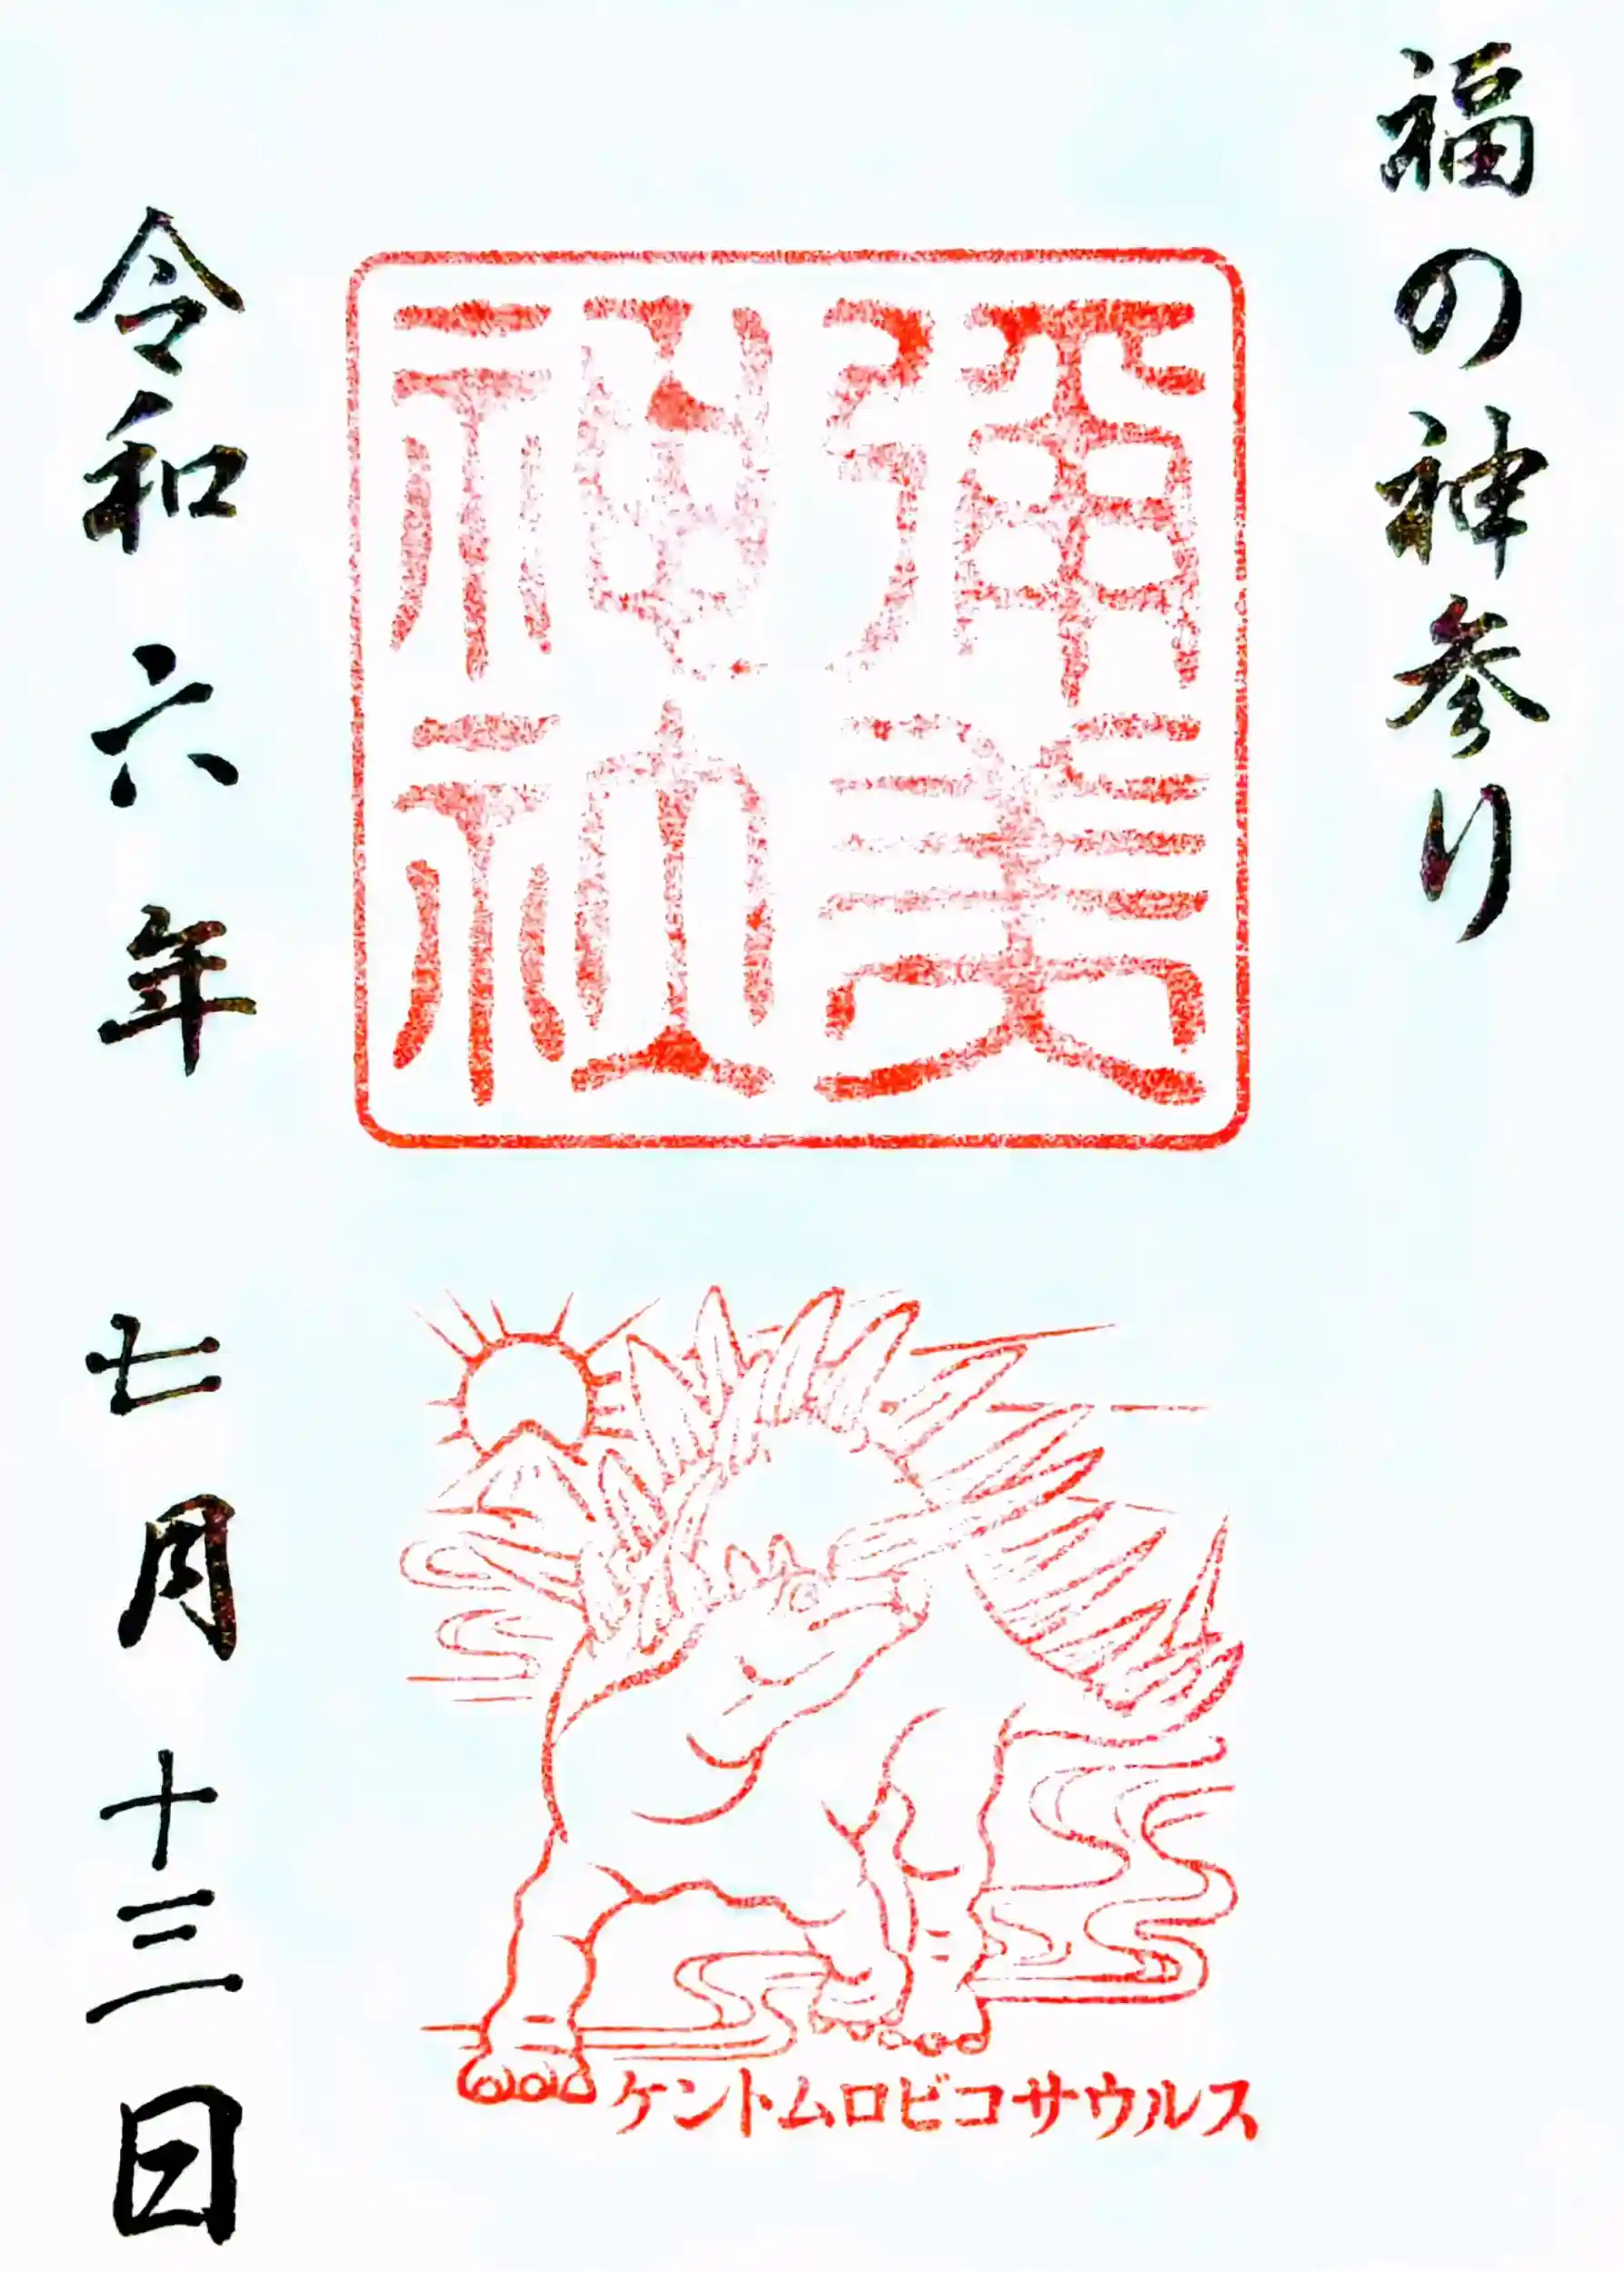 福の神参り
彌美
神社
ケントムロビコサウルス
令和六年 七月十三日